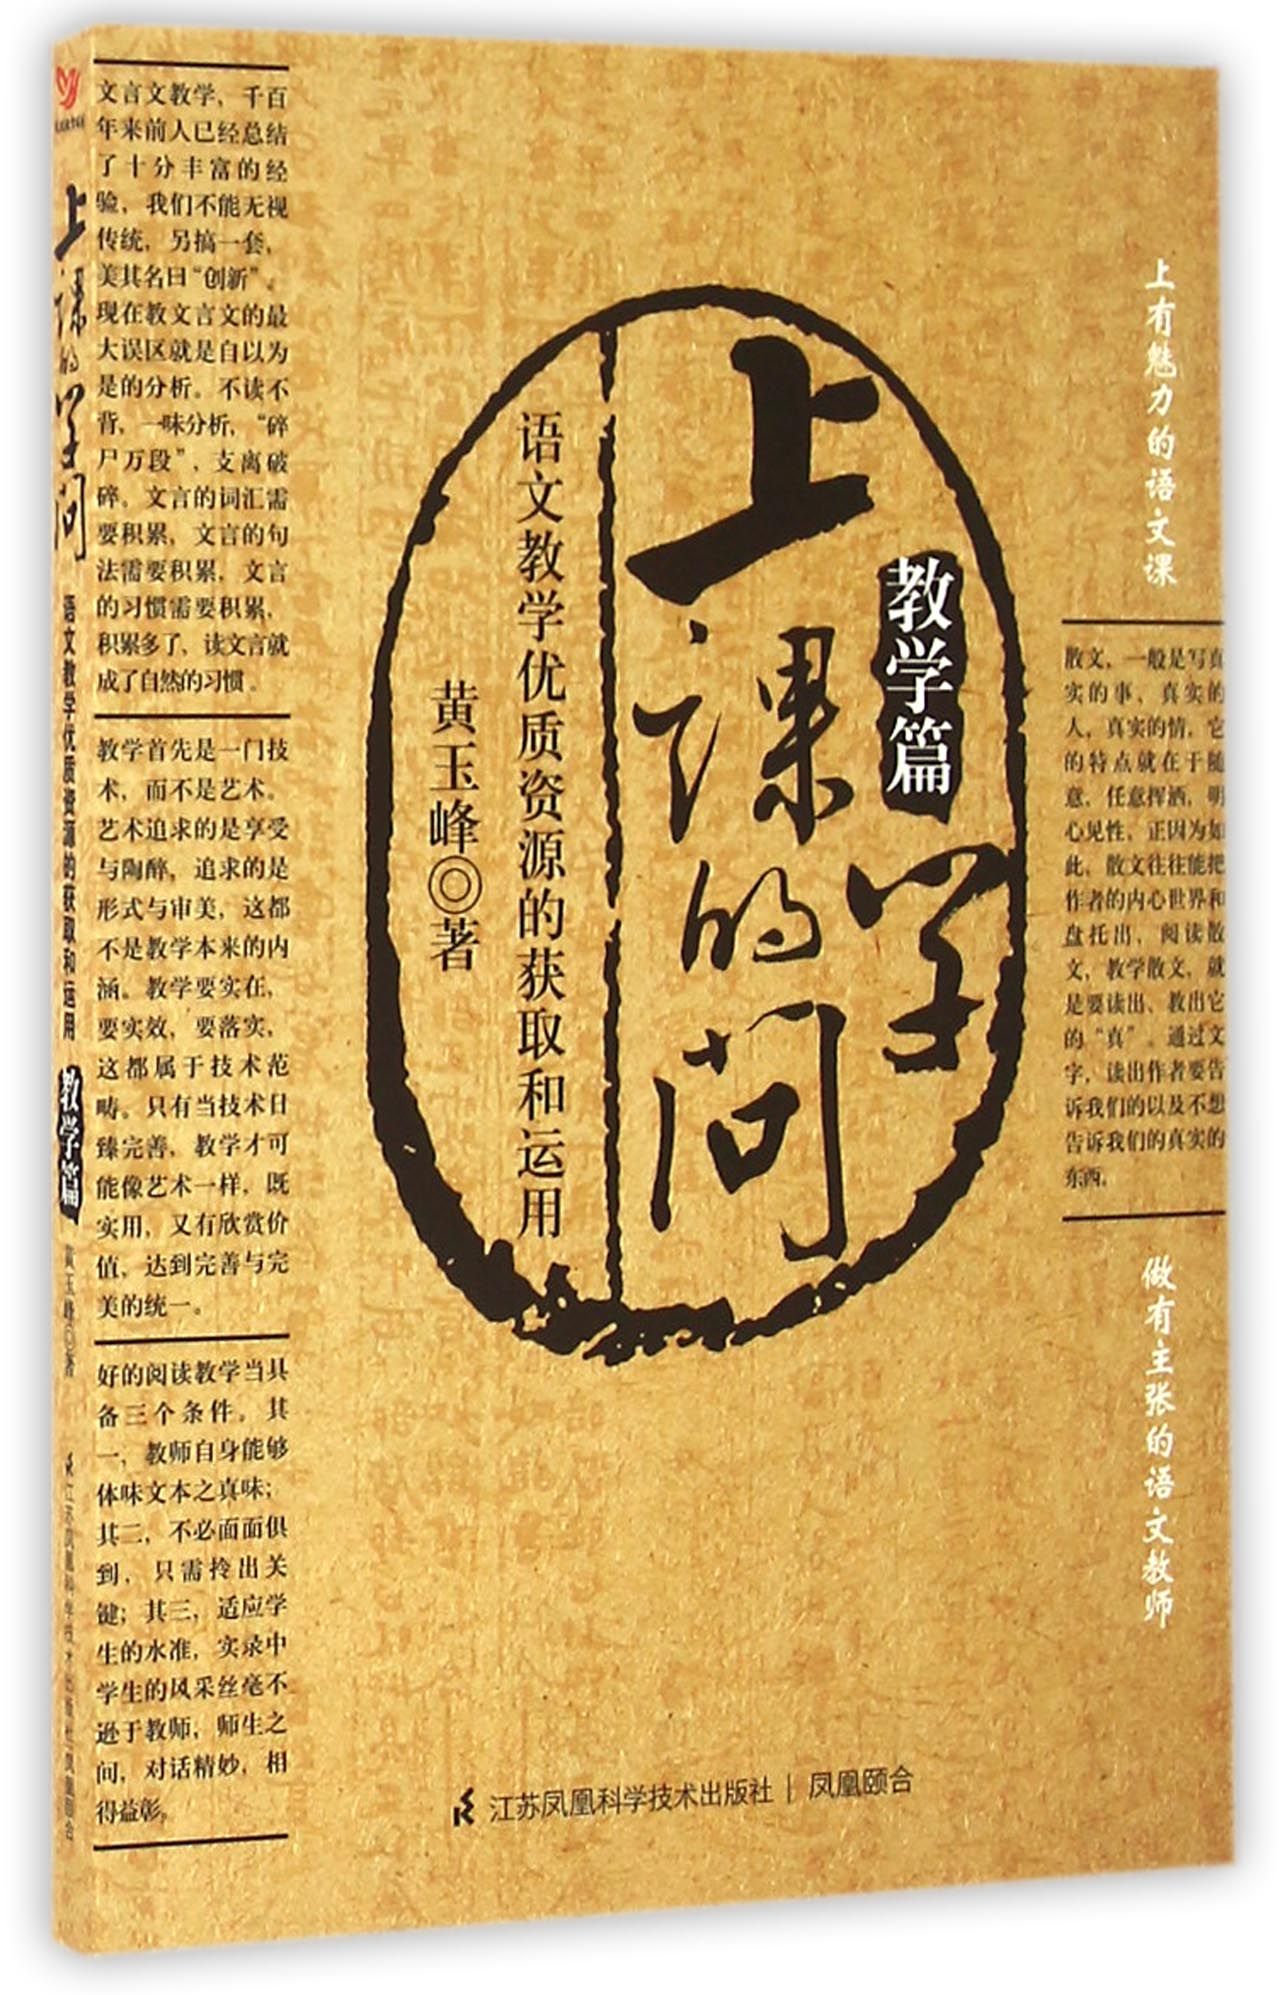 上课的学问
语文教学优质资源的获取和运用
教学篇
黄玉峰◎著
文言文教学，千百
年来前人已经总结
了十分丰富的经
验，我们不能无视
传统，另搞一套，
美其名曰“创新”。
现在教文言文的最
大误区就是自以为
是的分析。不读不
背，一味分析，“碎
尸万段”，支离破
碎。文言的词汇需
要积累，文言的句
法需要积累，文言
的习惯需要积累，
积累多了，读文言就
成了自然的习惯。
教学首先是一门技
术，而不是艺术。
艺术追求的是享受
与陶醉，追求的是
形式与审美，这都
不是教学本来的内
涵。教学要实在，
要实效，要落实，
这都属于技术范
畴。只有当技术日
臻完善，教学才可
能像艺术一样，既
实用，又有欣赏价
值，达到完善与完
美的统一。
好的阅读教学当具
备三个条件。其
一，教师自身能够
体味文本之真味；
其二，不必面面俱
到，只需拎出关
键；其三，适应学
生的水准，实录中
学生的风采丝毫不
逊于教师，师生之
间，对话精妙，相
得益彰。
上课的学问
教学篇
语文教学优质资源的获取和运用
黄玉峰◎著
上有魅力的语文课
散文，一般是写真
实的事、真实的
人，真实的情，它
的特点就在于随
意，任意挥洒，明
心见性，正因为如
此，散文往往能把
作者的内心世界和
盘托出，阅读散
文，教学散文，就
是要读出、教出它
的“真”。通过文
字，读出作者要告
诉我们的以及不想
告诉我们的真实的
东西。
做有主张的语文教师
江苏凤凰科学技术出版社｜凤凰颐合
江苏凤凰科学技术出版社 凤凰颐合